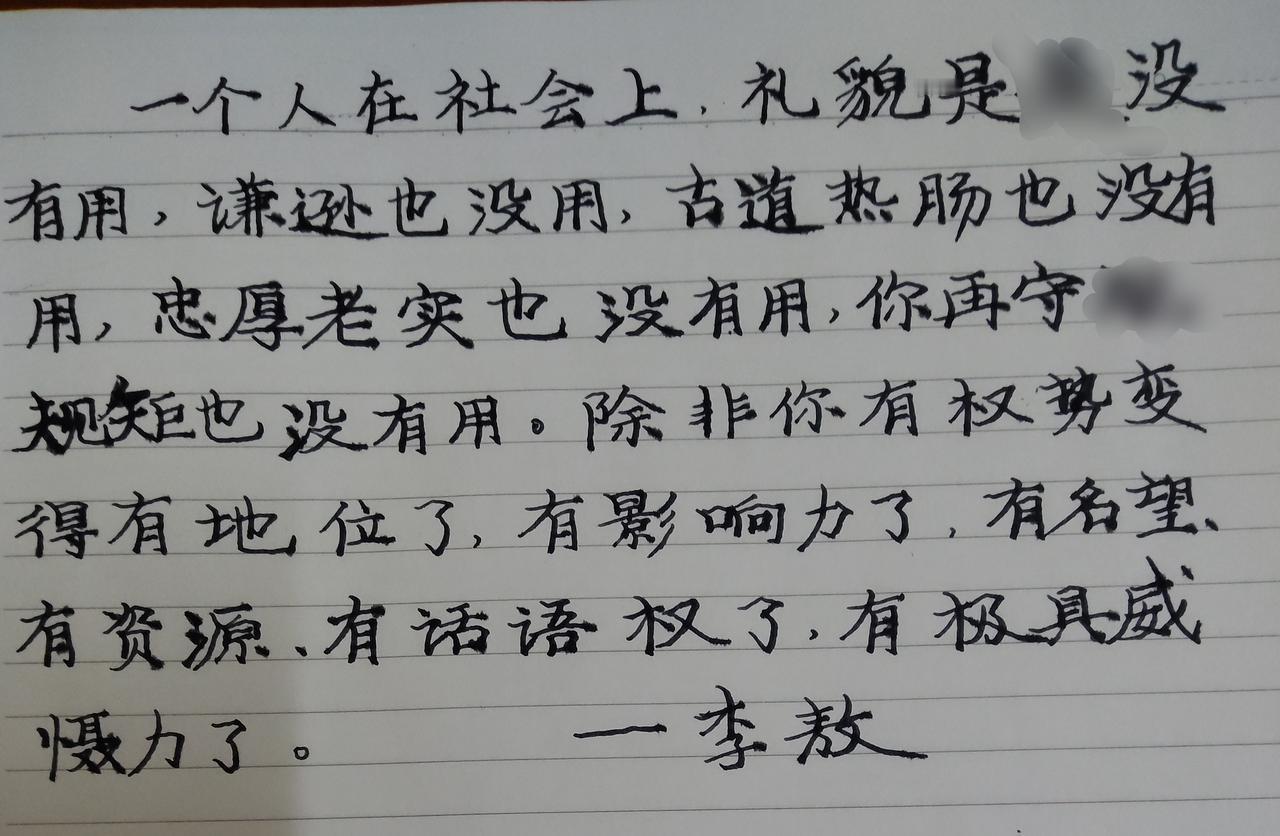 一个人在社会上，礼貌是没
有用，谦逊也没用，古道热肠也没有
用，忠厚老实也没有用，你再守
规矩也没有用。除非你有权势变
得有地位了，有影响力了，有名望、
有资源、有话语权了，有极具威
慑力了。 一李敖